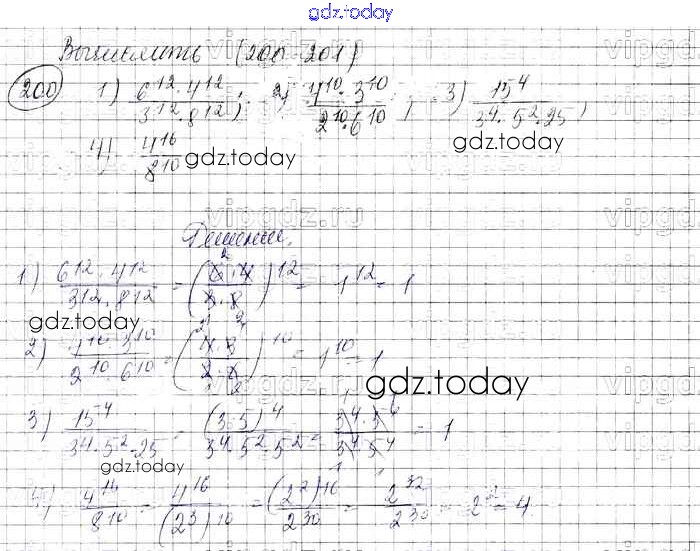 gdz.today
Вычислить (200-201)
200 1) 6^12·4^12 / 3^12·8^12; 2) 4^10·3^10 / 2^10·6^10; 3) 15^4 / 3^4·5^2·25;
4) 4^16 / 8^10
gdz.today
gdz.today
vipgdz.ru
Решение.
1) 6^12·4^12 / 3^12·8^12 = (6·4 / 3·8)^12 = 1^12 = 1
gdz.today
2) 4^10·3^10 / 2^10·6^10 = (4·3 / 2·6)^10 = 1^10 = 1
gdz.today
3) 15^4 / 3^4·5^2·25 = (3·5)^4 / 3^4·5^2·5^2 = 1
gdz.today
4) 4^16 / 8^10 = 4^16 / (2^3)^10 = (2^2)^16 / 2^30 = 2^32 / 2^30 = 2^2 = 4.